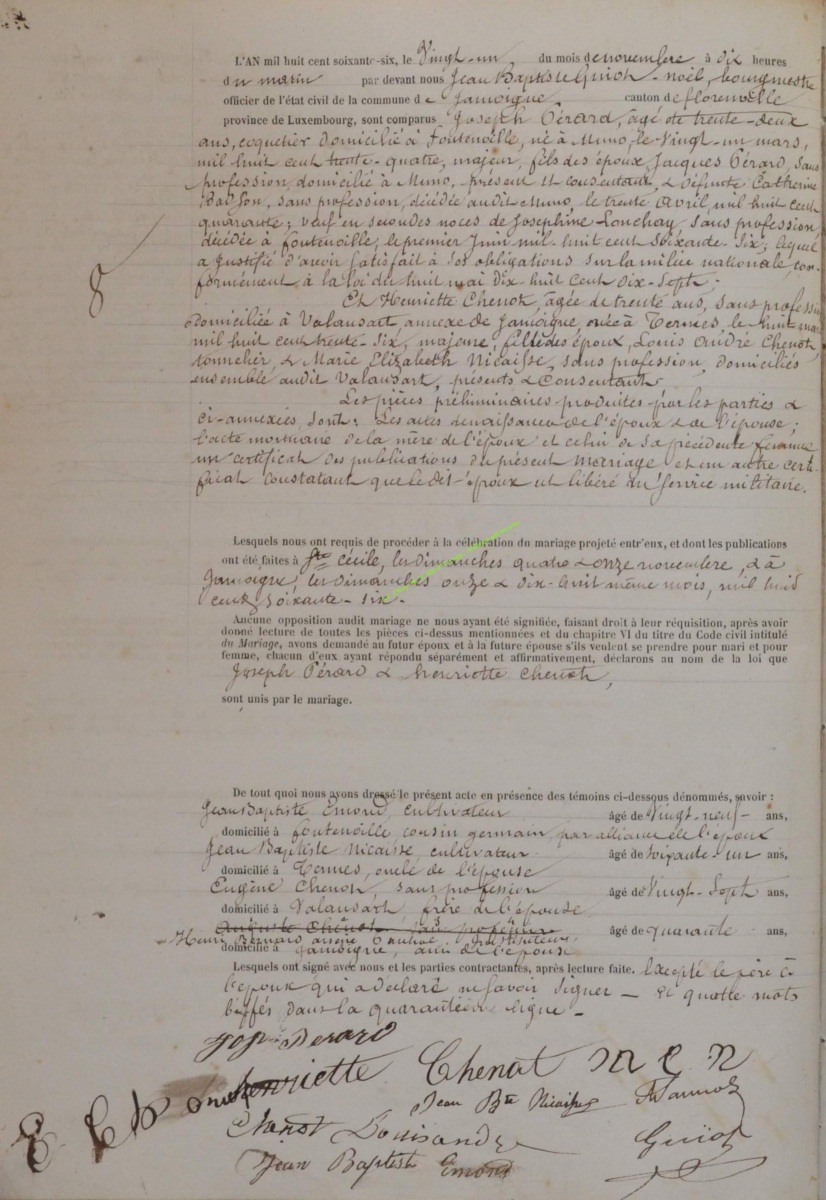 L'AN mil huit cent soixante-six, le Vingt-un du mois de novembre à dix heures
du matin par devant nous Jean Baptiste Guiot-noël, bourgmestre
officier de l'état civil de la commune de Jamoigne canton de florenville
province de Luxembourg, sont comparus Joseph Pérard, âgé de trente-deux
ans, coquetier domicilié à Fontenoille, né à Muno, le Vingt-un mars,
mil huit cent trente-quatre, majeur, fils des époux Jacques Pérard, sans
profession, domicilié à Muno, présent et consentant, & défunte Catherine
sans profession, décédée audit Muno, le trente Avril, mil huit cent
quarante; veuf en secondes noces de Josephine Lonchay, sans profession
décédée à fontenoille, le premier Juin mil-huit cent Soixante-Six; lequel
a justifié d'avoir satisfait à ses obligations sur la milice nationale, con-
formément à la loi du huit mai dix-huit cent dix-Sept;
Et Henriette Chenot, âgée de trente ans, sans profession
domiciliée à Valansart, annexe de Jamoigne, née à Termes, le huit mai
mil huit cent trente-Six, majeure, fille des époux, Louis André Chenot,
tonnelier, & Marie Elizabeth Nicaisse, sans profession, domiciliés
ensemble audit Valansart, présents & Consentants.
Les pièces préliminaires produites par les parties &
ci-annexées, sont: Les actes de naissance de l'époux & de l'épouse;
l'acte mortuaire de la mère de l'époux et celui de sa précédente femme
un certificat des publications du présent mariage et un autre certi-
ficat constatant que le dit époux est libéré du Service militaire.
8
Lesquels nous ont requis de procéder à la célébration du mariage projeté entr'eux, et dont les publications
ont été faites à Ste Cécile, les dimanches quatre & onze novembre, & à
Jamoigne, les dimanches onze & dix-huit même mois, mil huit
cent soixante-six.
Aucune opposition audit mariage ne nous ayant été signifiée, faisant droit à leur réquisition, après avoir
donné lecture de toutes les pièces ci-dessus mentionnées et du chapitre VI du titre du Code civil intitulé
du Mariage, avons demandé au futur époux et à la future épouse s'ils veulent se prendre pour mari et pour
femme, chacun d'eux ayant répondu séparément et affirmativement, déclarons au nom de la loi que
Joseph Pérard & henriette Chenot,
sont unis par le mariage.
De tout quoi nous ayons dressé le présent acte en présence des témoins ci-dessous dénommés, savoir :
Jean Baptiste Emond, cultivateur âgé de Vingt-neuf ans,
domicilié à fontenoille cousin germain, par alliance de l'époux
Jean Baptiste Nicaisse, cultivateur âgé de soixante-un ans,
domicilié à Termes, oncle de l'épouse
Eugène Chenot, sans profession âgé de Vingt-Sept ans,
domicilié à Valansart, frère de l'épouse
Auguste Chenot, sans profession âgé de quarante ans,
Henri Bernard instituteur
domicilié à Jamoigne, ami de l'épouse
Lesquels ont signé avec nous et les parties contractantes, après lecture faite. Excepté le père de
l'époux qui a déclaré ne savoir signer — et quatre mots
biffés dans la quarantième ligne —
Jos Perard
henriette Chenot
Jean Bte Nicaisse
Chenot Louis andré Guiot
Jean Baptiste Emond